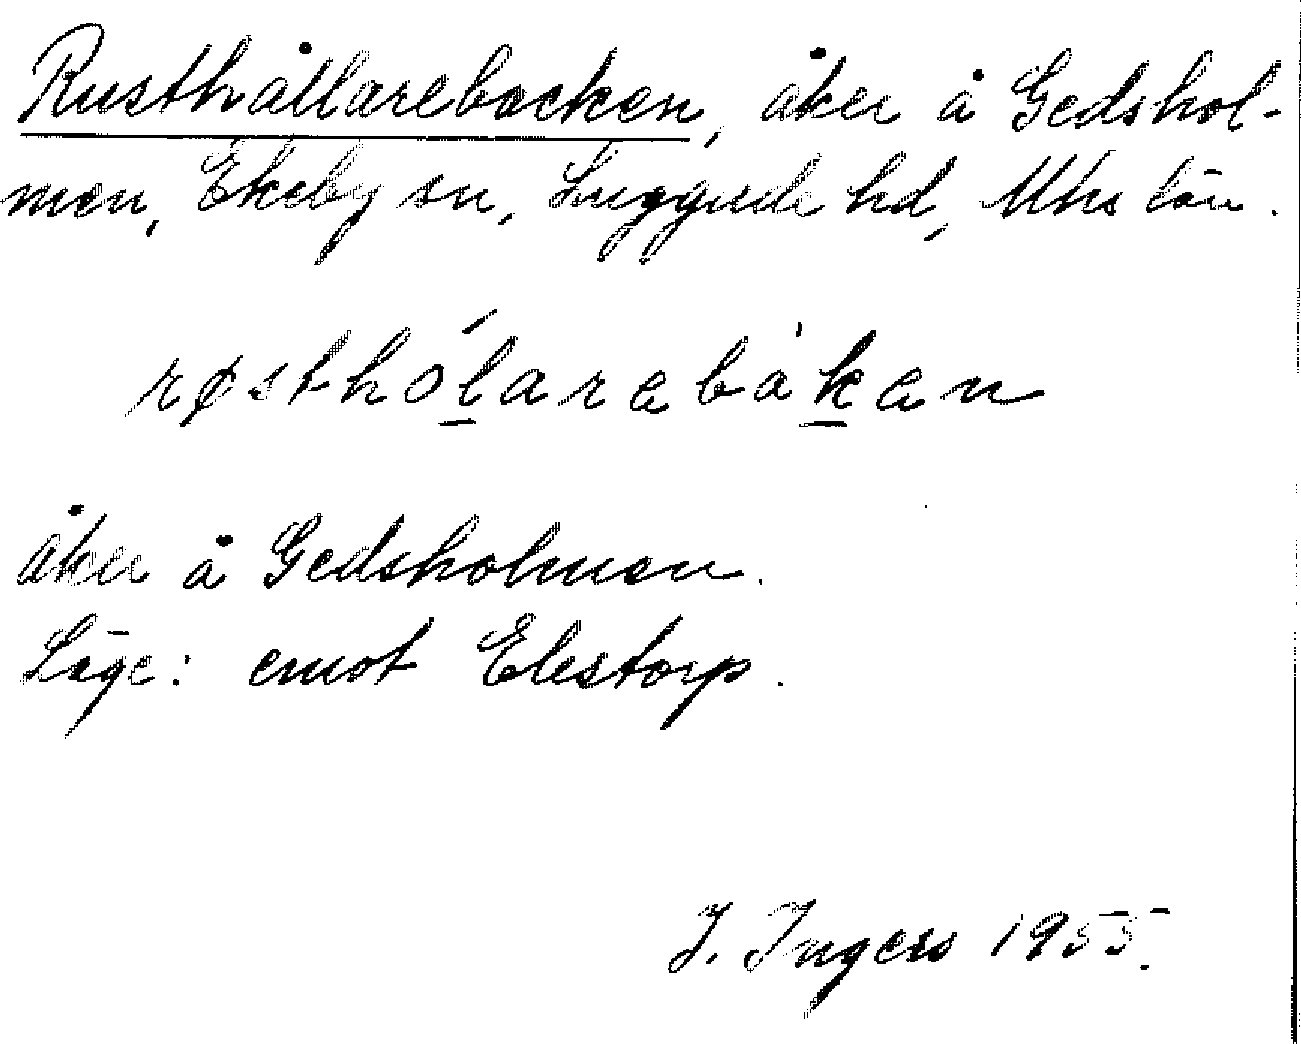 Rusthållarebacken, åker å Gedshol-
men, Ekeby sn, Luggude hd, Mhs län.
røsthólarebàken
åker å Gedsholmen.
Läge: emot Elestorp.
J. Ingers 1955.